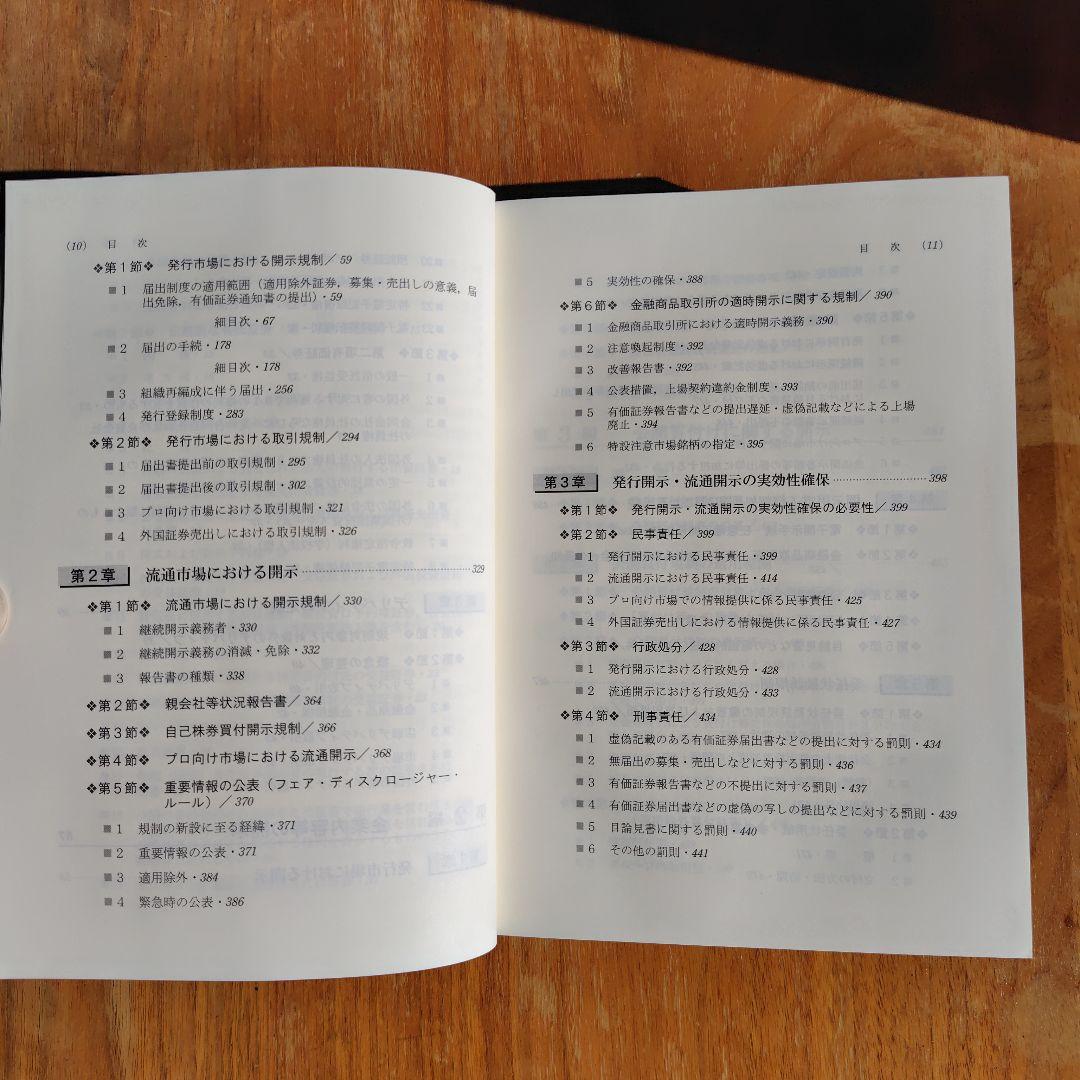 (10) 目 次
❖第1節❖ 発行市場における開示規制／59
■1 届出制度の適用範囲（適用除外証券，募集・売出しの意義，届
出免除，有価証券通知書の提出）・59
細目次・67
■2 届出の手続・178
細目次・178
■3 組織再編成に伴う届出・256
■4 発行登録制度・283
❖第2節❖ 発行市場における取引規制／294
■1 届出書提出前の取引規制・295
■2 届出書提出後の取引規制・302
■3 プロ向け市場における取引規制・321
■4 外国証券売出しにおける取引規制・326
第2章 流通市場における開示 329
❖第1節❖ 流通市場における開示規制／330
■1 継続開示義務者・330
■2 継続開示義務の消滅・免除・332
■3 報告書の種類・338
❖第2節❖ 親会社等状況報告書／364
❖第3節❖ 自己株券買付開示規制／366
❖第4節❖ プロ向け市場における流通開示／368
❖第5節❖ 重要情報の公表（フェア・ディスクロージャー・
ルール）／370
■1 規制の新設に至る経緯・371
■2 重要情報の公表・371
■3 適用除外・384
■4 緊急時の公表・386
目 次 (11)
■5 実効性の確保・388
❖第6節❖ 金融商品取引所の適時開示に関する規制／390
■1 金融商品取引所における適時開示義務・390
■2 注意喚起制度・392
■3 改善報告書・392
■4 公表措置，上場契約違約金制度・393
■5 有価証券報告書などの提出遅延・虚偽記載などによる上場
廃止・394
■6 特設注意市場銘柄の指定・395
第3章 発行開示・流通開示の実効性確保 398
❖第1節❖ 発行開示・流通開示の実効性確保の必要性／399
❖第2節❖ 民事責任／399
■1 発行開示における民事責任・399
■2 流通開示における民事責任・414
■3 プロ向け市場での情報提供に係る民事責任・425
■4 外国証券売出しにおける情報提供に係る民事責任・427
❖第3節❖ 行政処分／428
■1 発行開示における行政処分・428
■2 流通開示における行政処分・433
❖第4節❖ 刑事責任／434
■1 虚偽記載のある有価証券届出書などの提出に対する罰則・434
■2 無届出の募集・売出しなどに対する罰則・436
■3 有価証券報告書などの不提出に対する罰則・437
■4 有価証券届出書などの虚偽の写しの提出などに対する罰則・439
■5 目論見書に関する罰則・440
■6 その他の罰則・441